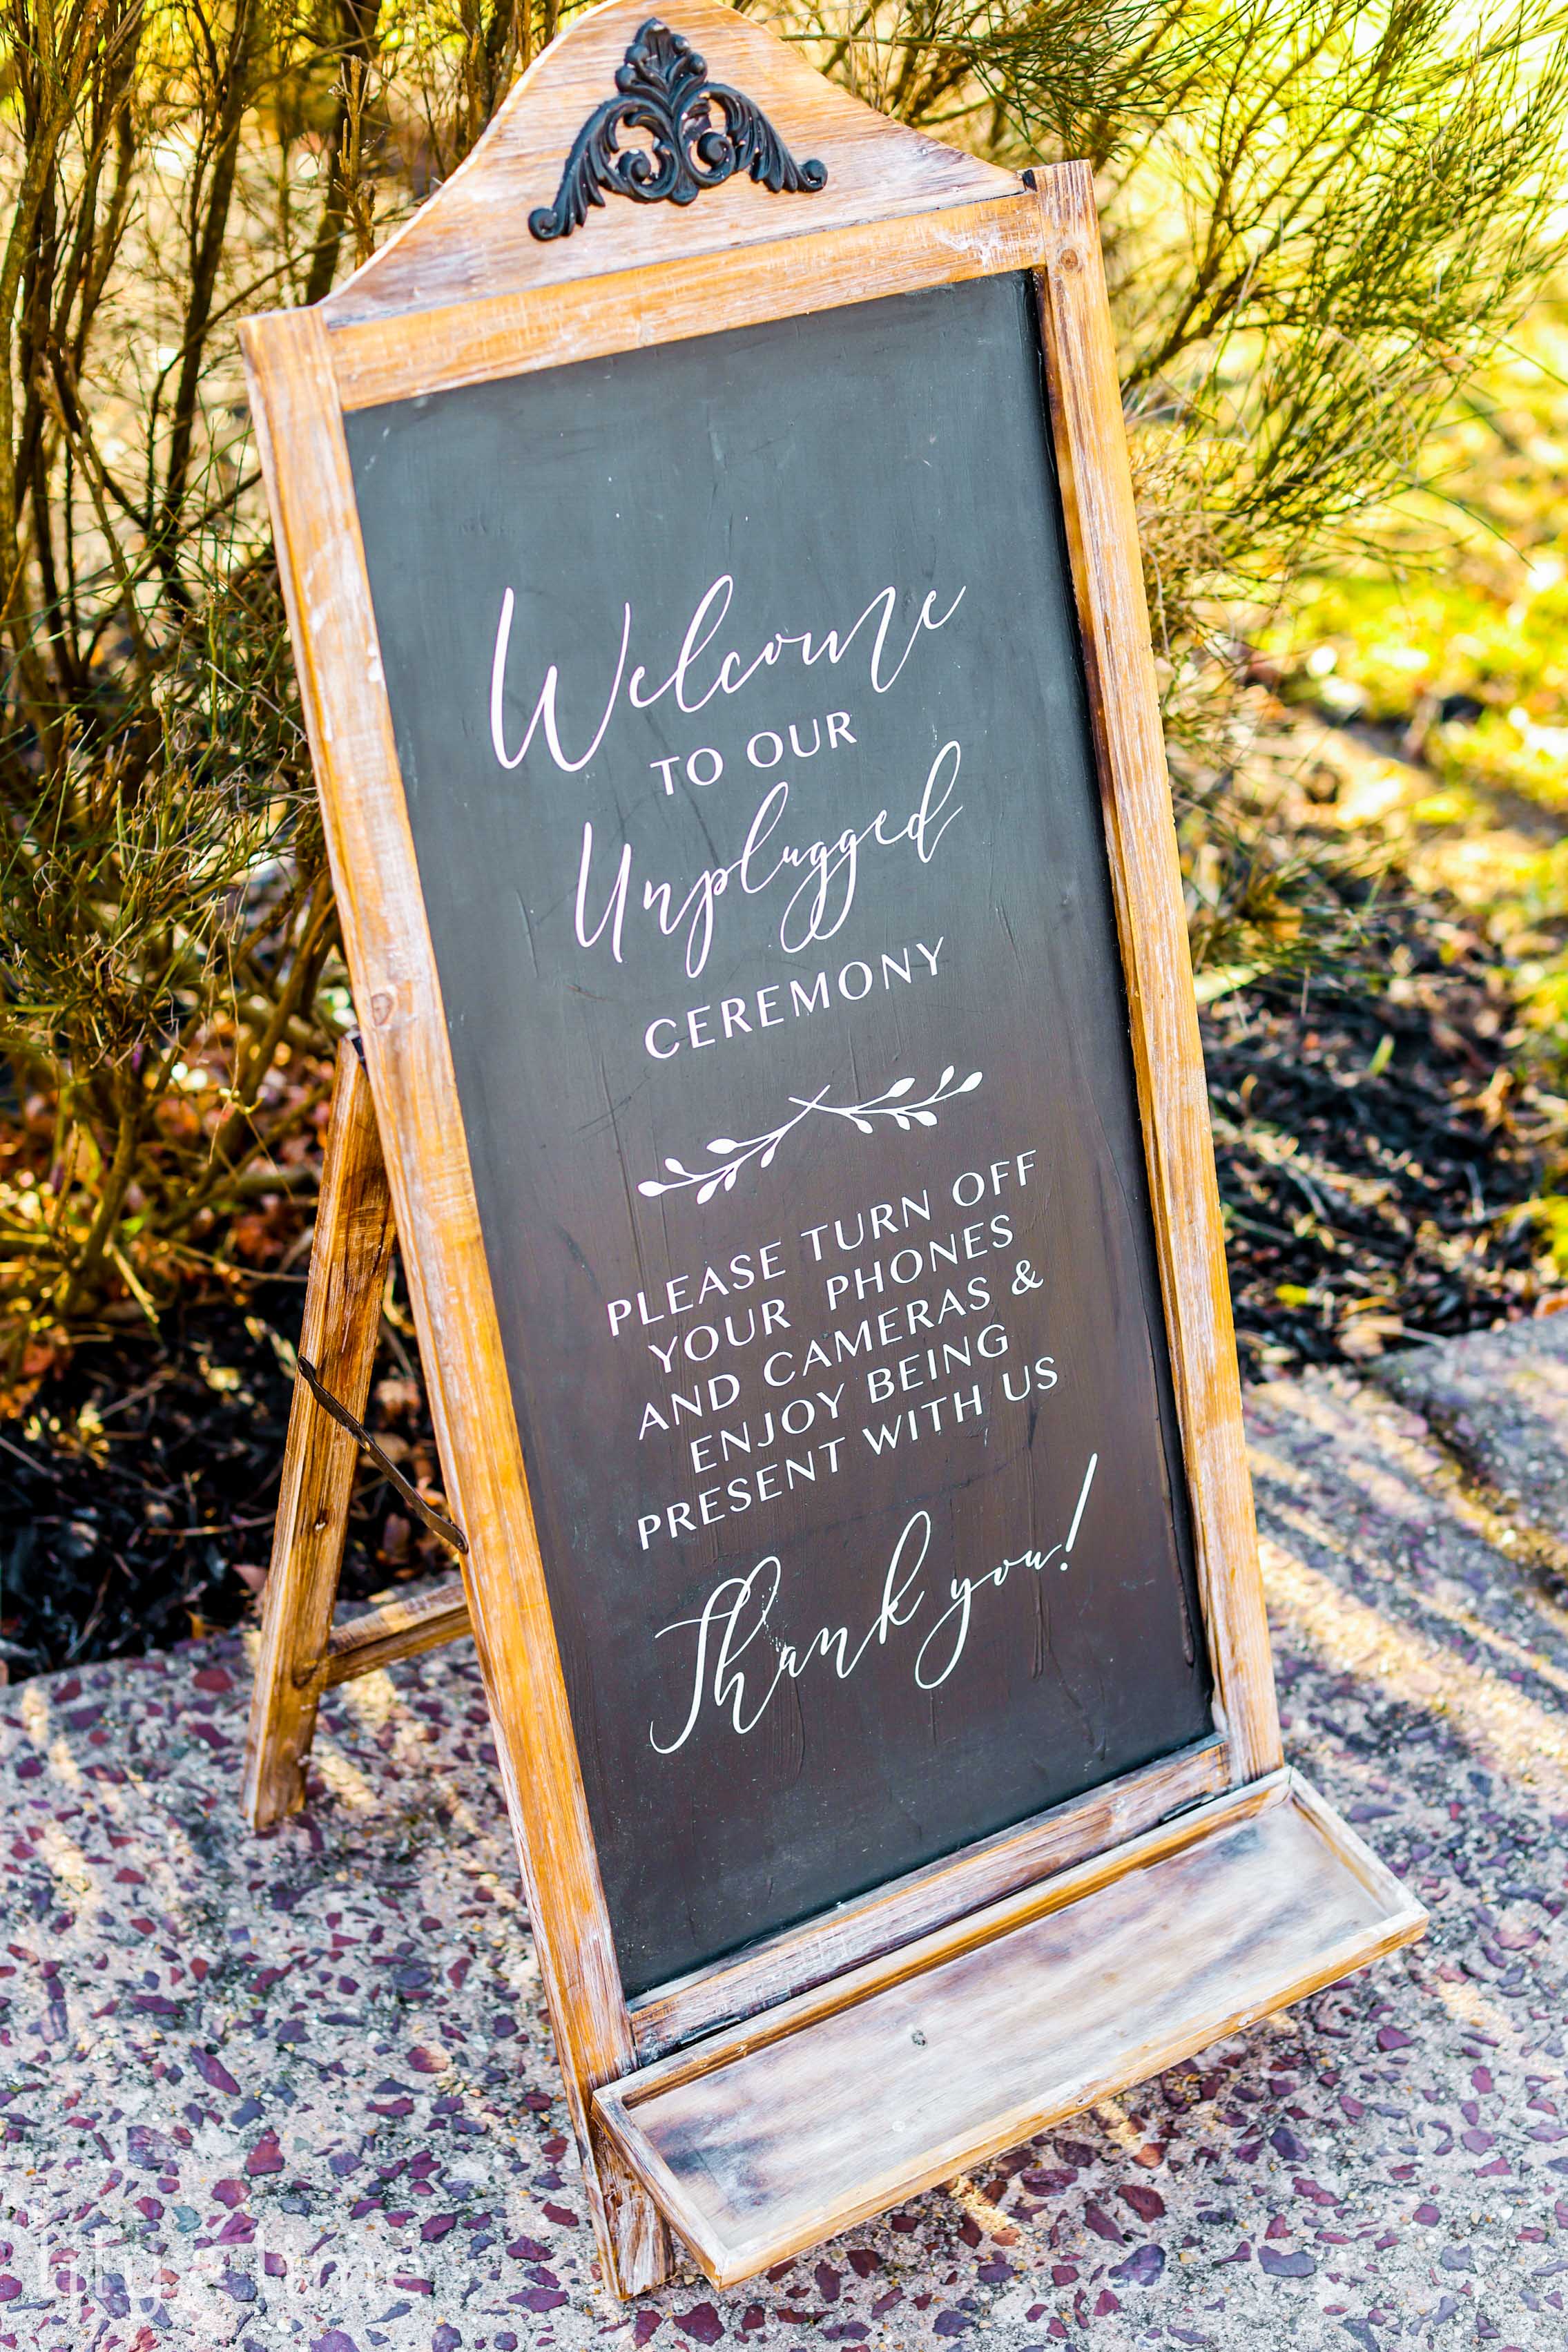 Welcome
TO OUR
Unplugged
CEREMONY
PLEASE TURN OFF
YOUR PHONES
AND CAMERAS &
ENJOY BEING
PRESENT WITH US
Thank you!